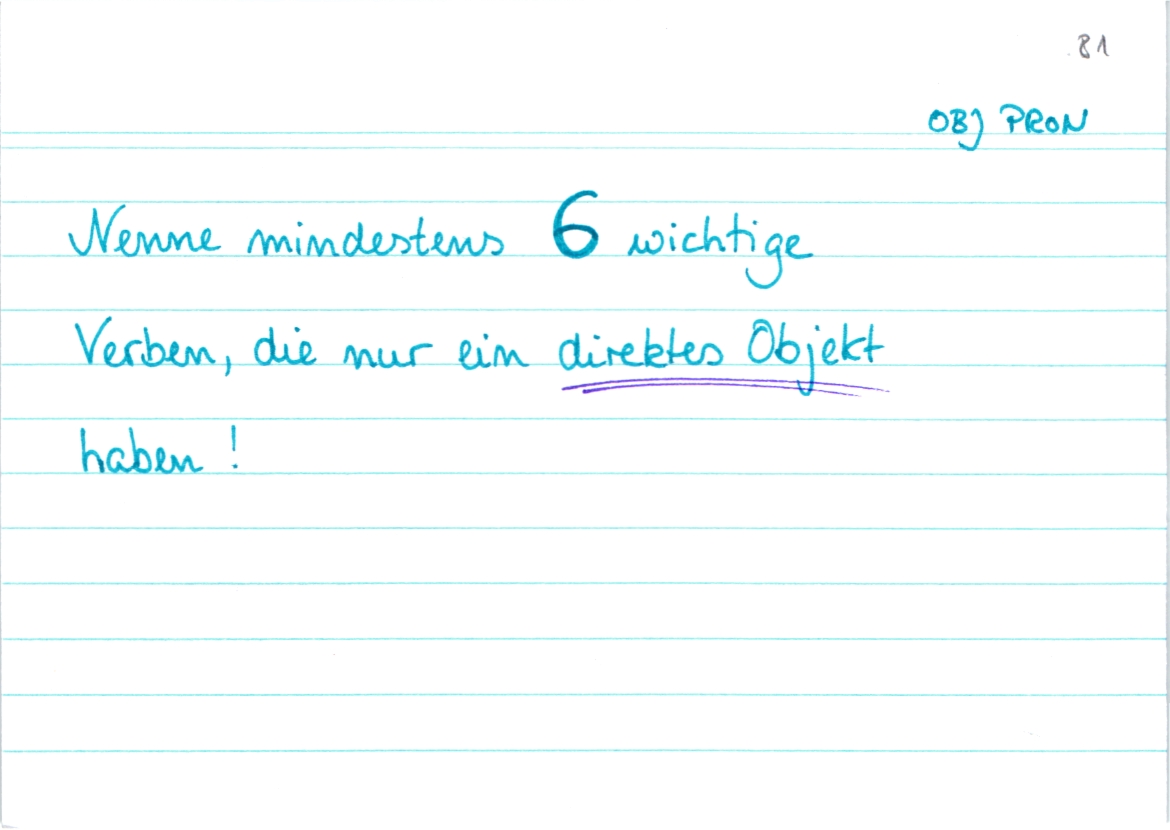 81
OBJ PRON
Nenne mindestens 6 wichtige
Verben, die nur ein direktes Objekt
haben!